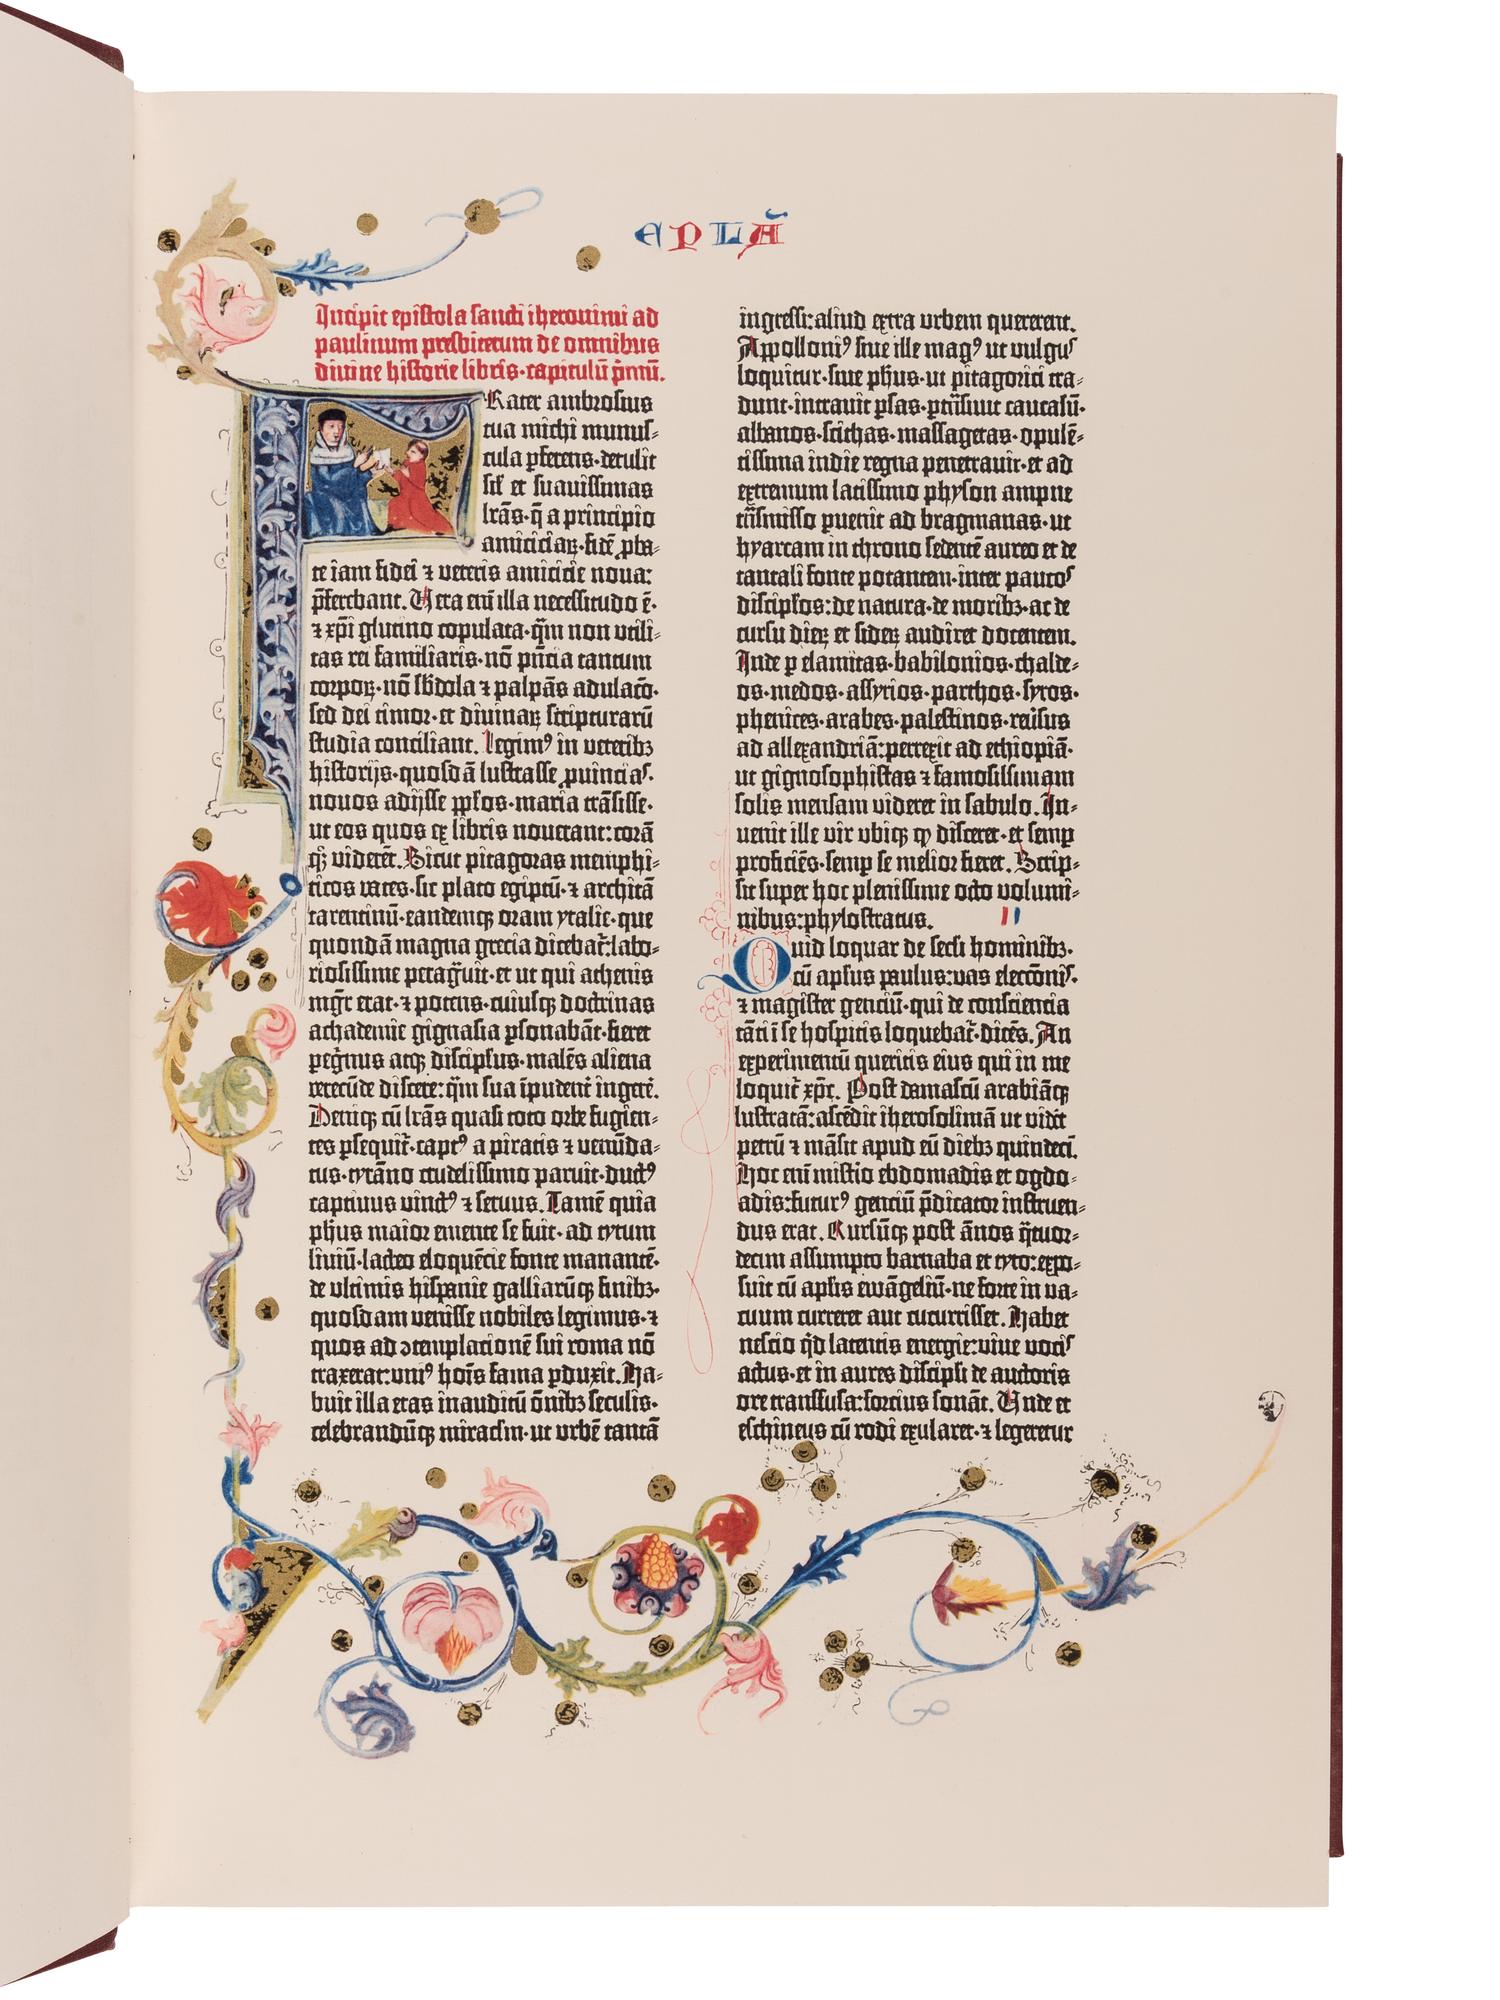 EPLA̅
Incipit epistola sancti iheronimi ad
paulinum presbiterum de omnibus
divine historie libris·capitulū p̄mū.
FRater ambrosius
tua michi munus-
cula ꝑferens·detulit
sil̄ et suauissimas
lr̄as·q̄ a principio
amiciciaꝝ·fidē ꝓba-
te iam fidei ⁊ veteris amicicie noua:
p̄ferebant. Vera eni̅ illa necessitudo ē·
⁊ xp̄i glutino copulata·q̄m non vtili-
tas rei familiaris·nō pn̄cia tantum
corpoꝝ·nō sb̄dola ⁊ palpās adulaco̅·
sed dei timor·et diuinaꝝ scripturarū
studia conciliant. Legimꝰ in veteribꝫ
historijs·quosdā lustrasse ꝓuincias·
nouos adijsse ppl̄os·maria trāsisse·
ut eos quos ex libris nouerant: corā
qꝫ viderēt. Sicut pitagoras memphi-
ticos vates·sic plato egiptū·⁊ architā
tarentinū·eandemqꝫ oram ytalie·que
quondā magna grecia dicebat̄: labo-
riosissime peragͣuit·et ut qui athenis
mgr̄ erat·⁊ potens·cuiusqꝫ doctrinas
achademie gignasia ꝑsonabāt·fieret
peg̊rinus atqꝫ discipl̄us·malēs aliena
verecūde discere: q̄m sua īpudent̄ ingerē̄.
Deniqꝫ cū lr̄as quasi toto orbe fugien-
tes ꝑsequit̄·captꝰ a piratis ⁊ venūda-
tus·tyrāno crudelissimo paruit·ductꝰ
captiuus vinctꝰ ⁊ seruus. Tamē quia
ph̄us maior emente se fuit·ad tytum
liuiū·lacteo eloquēcie fonte manantē·
de vltimis hispanie galliarūqꝫ finibꝫ·
quosdam venisse nobiles legimus·⁊
quos ad ↄtemplacionē sui roma nō
traxerat: vniꝰ hoīs fama ꝑduxit. Ha-
buit illa etas inauditū ōnibꝫ seculis·
celebrandūqꝫ miraclm̄·ut vrbē tantā
ingressi: aliud extra vrbem quererent.
Appolloniꝰ siue ille magꝰ ut vulgus
loquitur·siue ph̄us·ut pitagorici tra-
dunt·intrauit ꝑsas·ꝑtrāsiuit caucasū·
albanos·scithas·massagetas·opulē-
tissima indie regna penetrauit·et ad
extremum latissimo physon ampne
trāsmisso puenit ad bragmanas·ut
hyarcam in throno sedentē aureo et de
tantali fonte potantem·inter paucos
discipl̄os: de natura·de moribꝫ·ac de
cursu dieꝝ et sideꝝ audiret docentem.
Inde ꝑ elamitas·babilonios·chalde-
os·medos·assyrios·parthos·syros·
phenices·arabes·palestinos·reūsus
ad allexandriā: perrexit ad ethiopiā·
ut gignosophistas ⁊ famosissimam
solis mensam videret in sabulo. In-
uenit ille vir vbiqꝫ qͦ disceret·et semꝑ
proficiēs·semꝑ se melior fieret. Scrip-
sit super hoc plenissime octo volumi-
nibus: phylostratus. II
Quid loquar de secl̄i hominibꝫ·
cū apl̄us paulus: vas elecconis̄·
⁊ magister genciū·qui de consciencia
tāti ī se hospitis loquebat̄·dicēs. An
experimentū queritis eius qui in me
loquit̄ xp̄c. Post damascū arabiāqꝫ
lustratā: ascēdit iherosolimā ut vidēt
petrū ⁊ māsit apud eū diebꝫ quindeci̅.
Hoc eni̅ mistio ebdomadis et ogdo-
adis: futurꝰ genciū p̄dicator instruen-
dus erat. Rursūqꝫ post ānos q̄tuor-
decim assumpto barnaba et tyto: expo-
suit cū apl̄is ewāgeliū·ne forte in va-
cuum curreret aut cucurrisset. Habet
nescio q̄d latentis energie: viue vocis
actus·et in aures discipl̄i de auctoris
ore transfusa: forcius sonāt. Vnde et
eschineus cū rodi exularet·⁊ legeretur